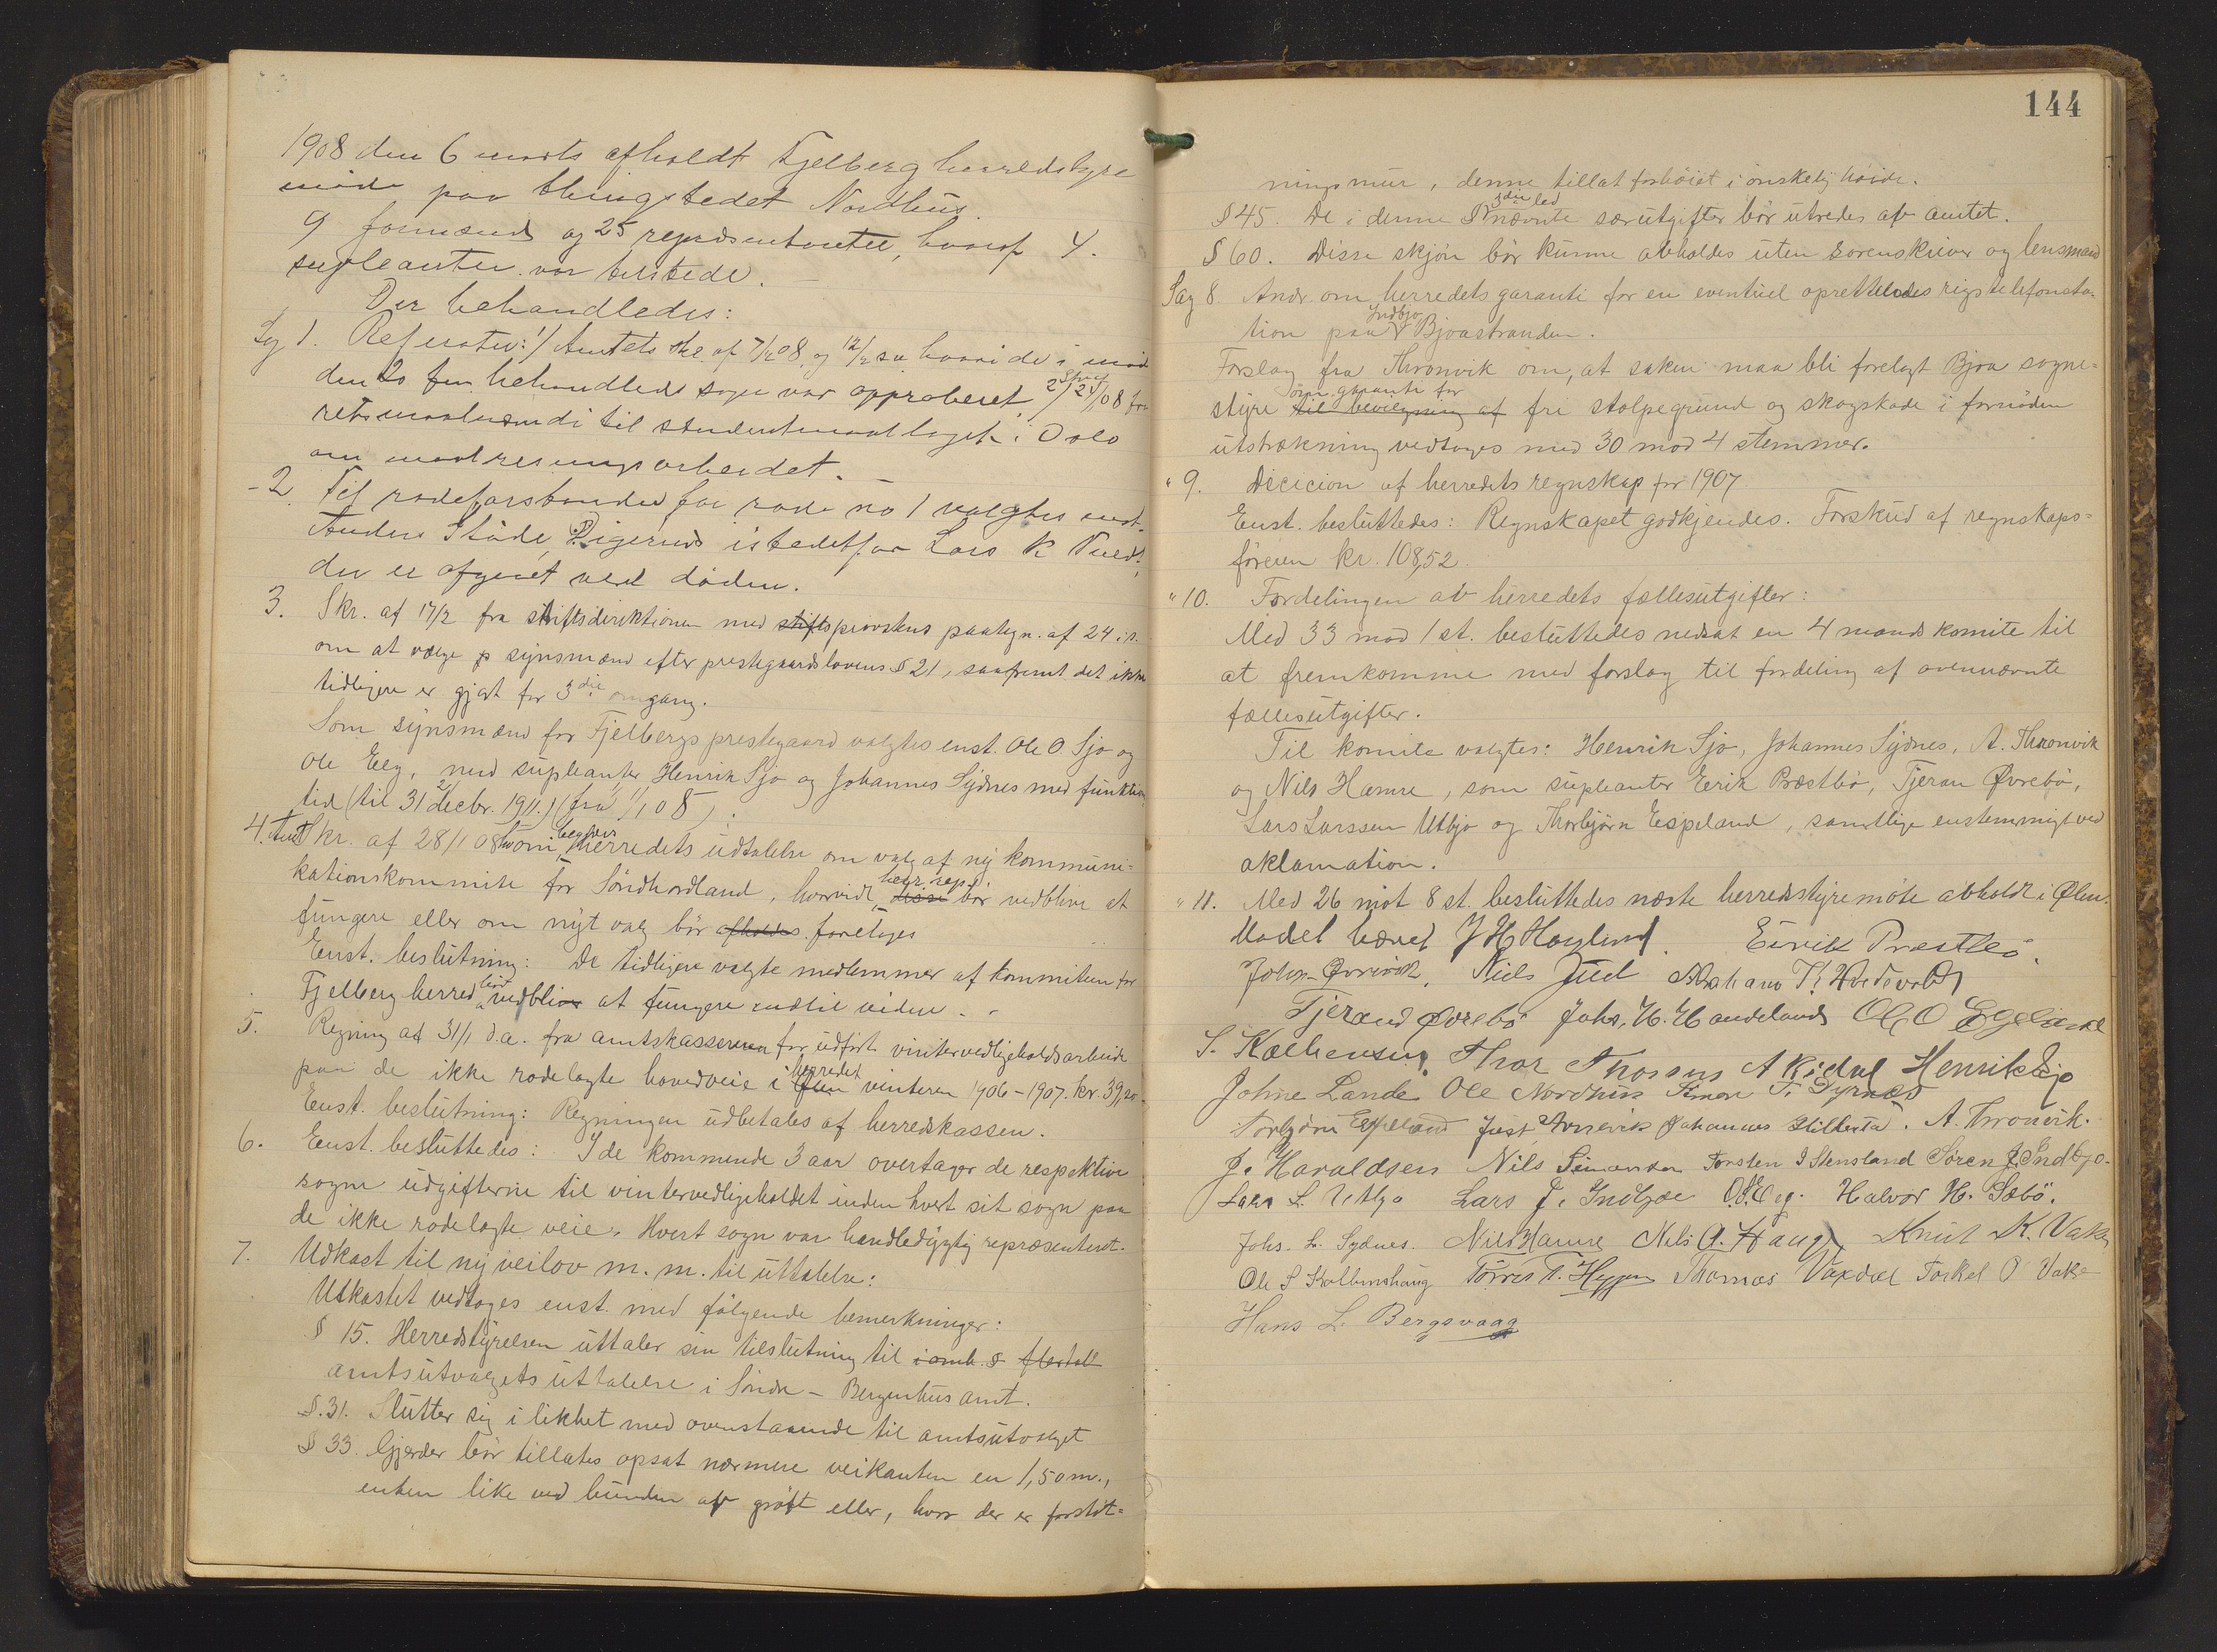 1908 den 6 marts afholdt Fjelberg herredstyre
møde paa thingstedet Nordhus.
9 formænd og 25 repræsentanter, hvoraf 4.
supleanter var tilstede.
Der behandledes:
Sag 1. Referater: 1/ Amtets skr. af 7/2 08, og 12/2 s.a. hvori de i møde
den 20 behandlede sager var approberet. 2/ Skriv 21/1 08 fra
til studentmaallaget i Oslo
om maalreisningsarbeidet.
- 2. Til rodeforstander for rode no 1 valgtes enst.
Anders Støde, istedetfor Lars K Tveit,
der er afgaaet ved døden.
3. Skr. af 17/2 fra stiftsdirektionen med stiftsprovstens paategn. af 24 i.s.
om at vælge synsmænd efter prestegaardslovens § 21, saafremt det ikke
tidligere er gjort for 3die omgang.
Som synsmænd for Fjelbergs prestegaard valgtes enst. Ole O Sjo og
Ole Eeg, med supleanter Henrik Sjo og Johannes Sydnes med funktions
tid (til 31 decbr. 1911.) (fra 1/1 08).
4. Amtskr. af 28/1 08 hvori begjæres herredets udtalelse om valg af ny kommuni-
kationskommite for Söndhordland, hvorvidt disse herr. repr. bør vedblive at
fungere eller om nyt valg bør afholdes. foretages
Enst. beslutning: De tidligere valgte medlemmer af kommiteen for
Fjelberg herred bør vedblive at fungere indtil videre.
5. Regning af 31/1 d.a. fra amtskassereren for udført vintervedligeholdsarbeide
paa de ikke rodelagte hovedveie i herredet vinteren 1906-1907. kr. 39,20
Enst. beslutning: Regningen udbetales af herredskassen.
6. Enst. besluttedes: I de kommende 3 aar overtager de respektive
sogne udgifterne til vintervedligeholdet inden hvert sit sogn paa
de ikke rodelagte veie. Hvert sogn var handledygtig repræsenteret.
7. Udkast til ny veilov m. m. til uttalelse:
Utkastet vedtoges enst. med følgende bemerkninger:
§ 15. Herredstyrelsen uttaler sin tilslutning til flertall
amtsutvalgets uttalelse i Söndre-Bergenhus amt.
§.31. Slutter sig i likhet med ovenstaaende til amtsutvalget
§ 33. Gjerder bør tillates opsat nærmere veikanten en 1,50 m.,
enten like ved bunden af grøft eller, hvor der er forstøt-
144
ningsmur, denne tillat forhøiet i ønskelig høide.
§ 45. De i denne § 3die led nævnte særutgifter bør utredes av amtet.
§ 60. Disse skjøn bør kunne avholdes uten sorenskriver og lensmand
Sag 8. Andr. om herredets garanti for en eventuel oprettendes rigstelefonsta-
tion paa Indbjo Bjoastranden.
Forslag fra Thronvik om, at saken maa bli forelagt Bjoa sogne-
styre til bevilgning af om garanti for fri stolpegrund og skogskade i fornøden
utstrækning vedtoges med 30 mod 4 stemmer.
" 9. Decicion af herredets regnskap for 1907
Enst. besluttedes: Regnskapet godkjendes. Forskud af regnskaps-
føreren kr. 108,52
" 10. Fordelingen av herredets fællesutgifter:
Med 33 mod 1 st. besluttedes nedsat en 4 mands komite til
at fremkomme med forslag til fordeling af ovennævnte
fællesutgifter.
Til komite valgtes: Henrik Sjo, Johannes Sydnes, A. Thronvik
og Nils Hamre, som supleanter Eerik Præstbø, Tjeran Øvrebø,
Lars Larssen Utbjo og Thorbjørn Espeland, samtlige enstemmigt ved
aklamation.
" 11. Med 26 mot 8 st. besluttedes næste herredsstyremøte avholdt i Ølen.
Mødet hævet J H Høylund. Eirik Præstbø.
Johs. Øvrevik. Niels Juel Abraham T.
Tjerand Øvrebø Johs. H. Handeland Ole O Egeland
Thor Thorsen A Kidal Henrik Sjo
Johne Lande Ole Nordhus Simon T. Dyrnes
Torbjørn Espeland Just Johannes A. Thronvik.
J. Haraldsen Nils Simonsen Torsten I Stensland Søren J. Indbjo.
Lars L. Utbjo Lars J. Indbjoe O.O. Eeg. Halvor H. Sæbö.
Johs. L. Sydnes. Nils Hamre Nils G. Hauge Knut K. Vake
Ole S Kolbenshaug Torres T. Thomas Vaxdal Torkel O Vake
Hans L. Bergsvaag